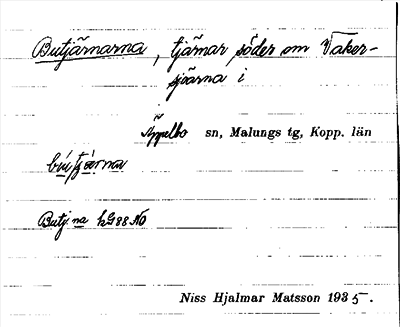 Butjärnarna, tjärnar söder om Vaker-
sjöarna i
Äppelbo sn, Malungs tg, Kopp. län
bútjæ̀rna
Butj:na hG88 NO
Niss Hjalmar Matsson 1935.